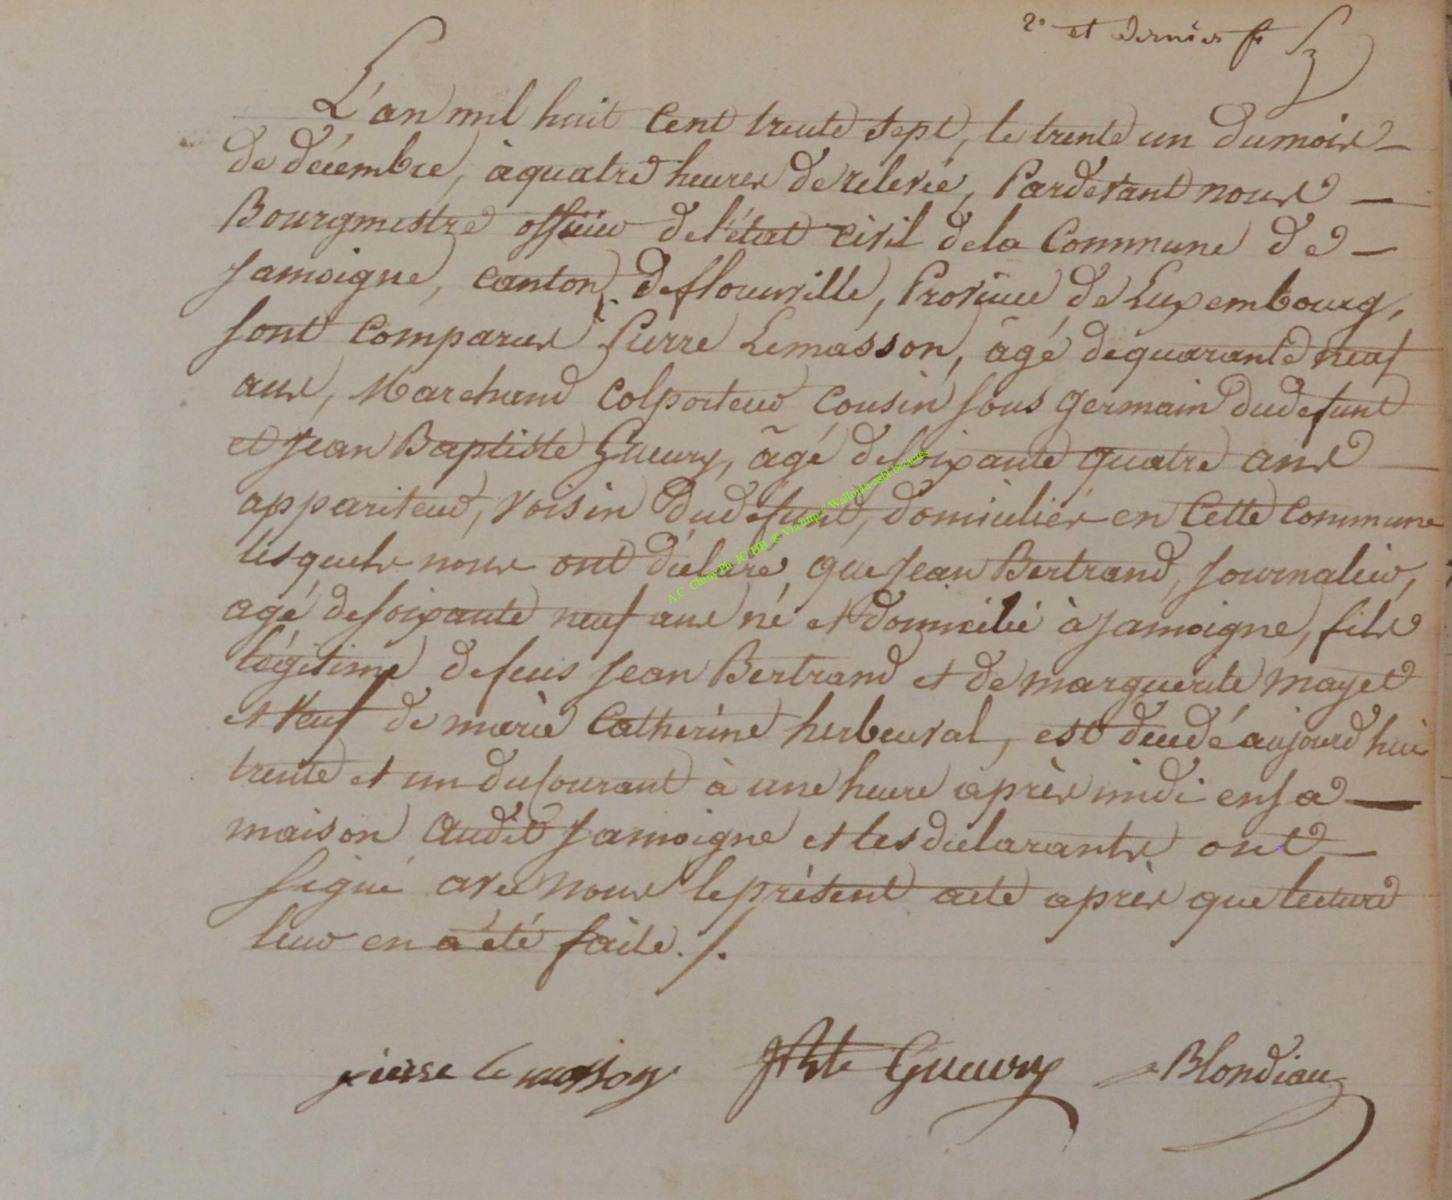 2e et dernier f
L'an mil huit cent trente sept, le trente un du mois
de décembre, à quatre heures de relevée, Pardevant nous
Bourgmestre officier de l'état civil de la Commune de
Jamoigne, canton de florenville, Province de Luxembourg,
sont comparus Pierre Lemasson, âgé de quarante neuf
ans, Marchand Colporteur Cousin sous germain du defunt
et Jean Baptiste Gueury, âgé de soixante quatre ans
appariteur, voisin du defunt, domiciliés en Cette Commune
lesquels nous ont déclaré, que Jean Bertrand, Journalier,
agé de soixante neuf ans né et domicilié à Jamoigne, fils
légitime de feus Jean Bertrand et de marguerite mayet
et veuf de marie Catherine herbeuval, est décédé aujourd'hui
trente et un du courant à une heure après midi en sa
maison audit Jamoigne et les déclarants ont
signé avec nous le présent acte après que lecture
leur en a été faite ./.
pierre lemasson JBte Gueury Blondiau